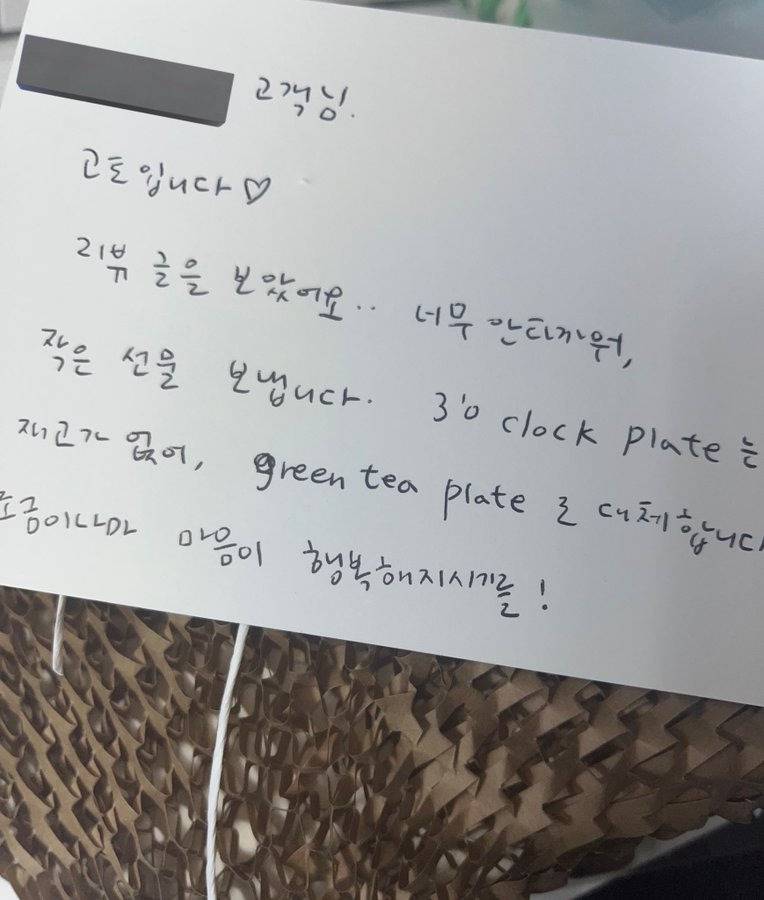 고객님.
고토입니다♡
리뷰 글을 보았어요.. 너무 안타까워,
작은 선물 보냅니다. 3'o clock plate 는
재고가 없어, green tea plate 로 대체합니다
조금이나마 마음이 행복해지시기를!